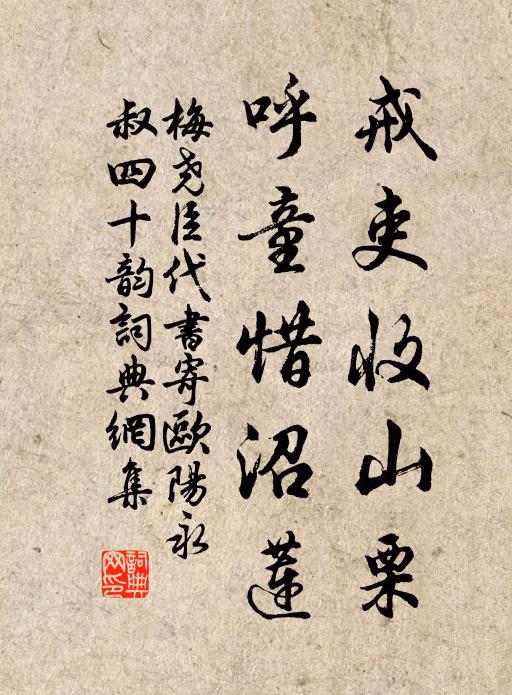 戒吏收山栗
呼童惜沼蓮
梅尧臣代書寄歐陽永
叔四十韵詞典網集
詞典网印